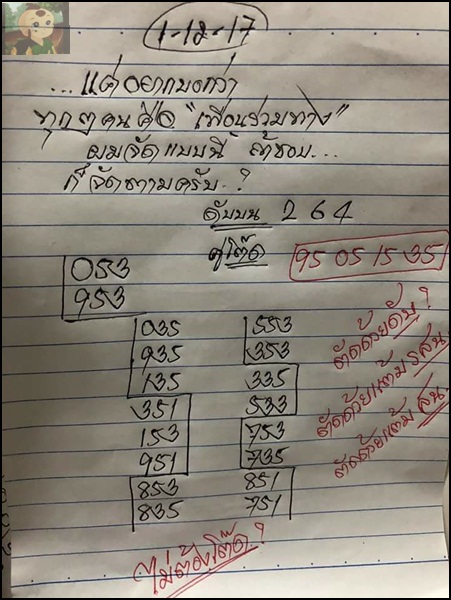 1-12-17
...แค่อยากบอกว่า
ทุกๆคนคือ "เพื่อนร่วมทาง"
ผมจัดแบบนี้ ถ้าชอบ...
ก็จัดตามครับ..?
ดับบน 2 6 4
คู่โต๊ด 95 05 15 35
053
953
035 553
935 353
135 335
351 533
153 753
951 735
853 851
835 751
ตัดด้วยดับ?
ตัดด้วยแต้ม รสน.
ตัดด้วยแต้ม สน.
ไม่ต้องโต๊ด?